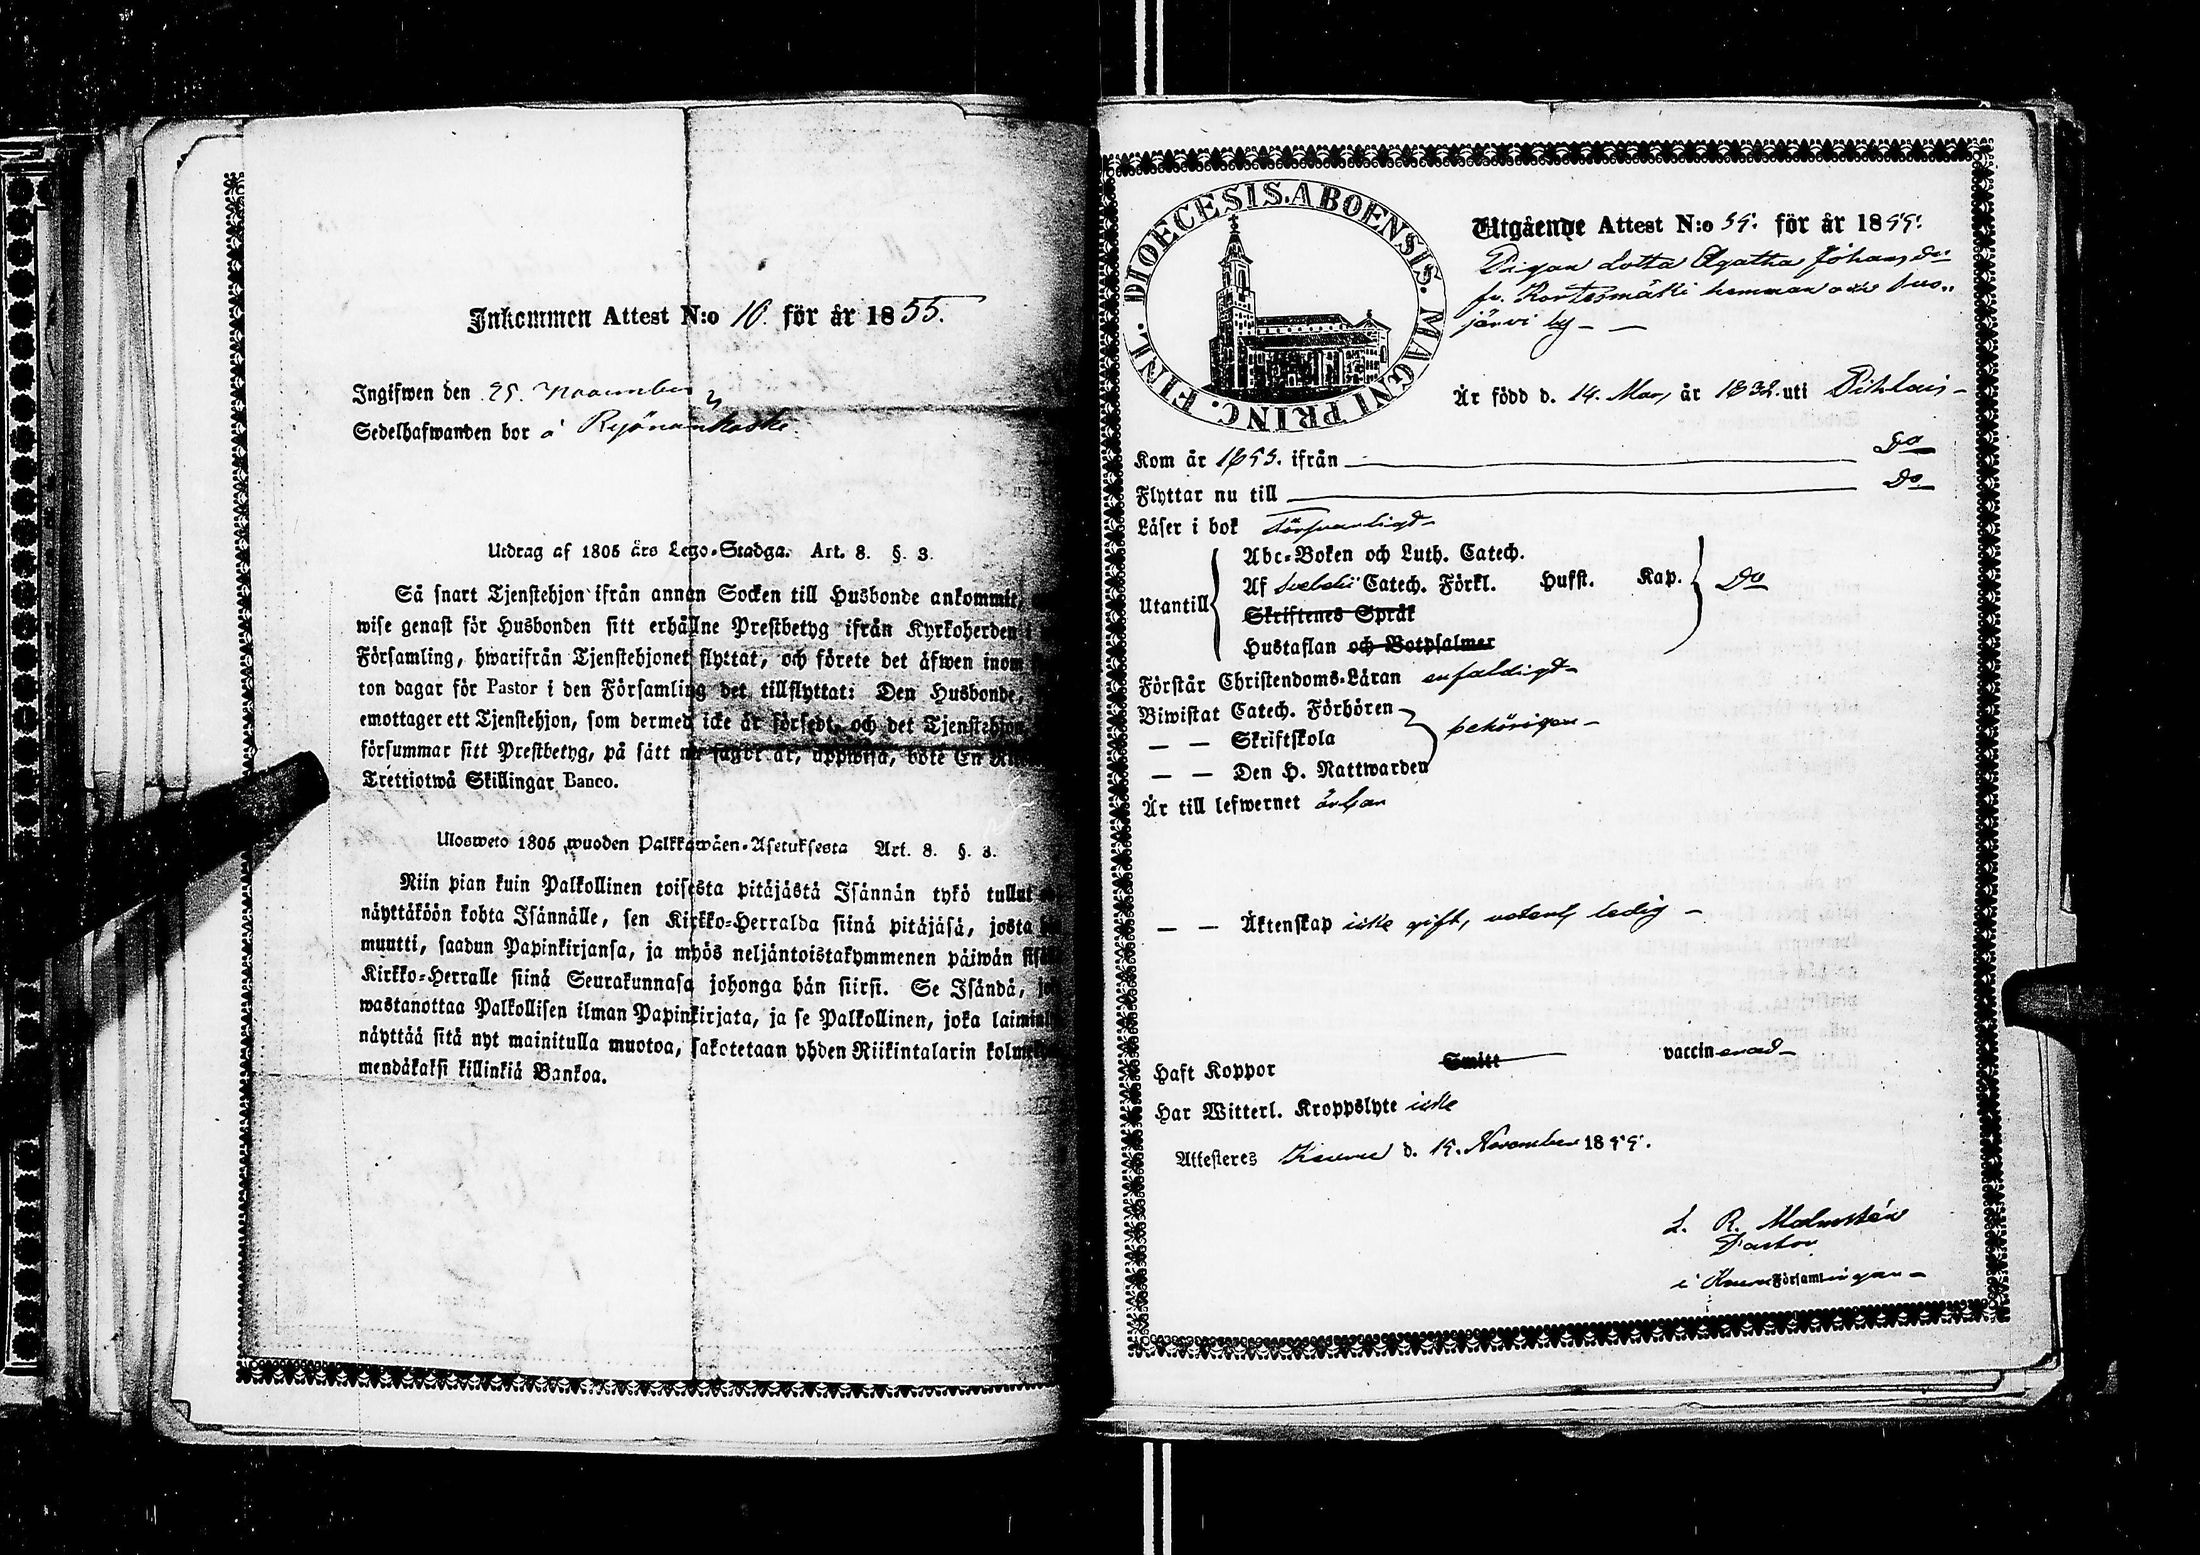 Inkommen Attest N:o 10. för år 1855.
Ingifwen den 25. November
Sedelhafwanden bor å
Utdrag af 1805 års Lego-Stadga. Art. 8. §. 3.
Så snart Tjenstehjon ifrån annan Socken till Husbonde ankommit,
wise genast för Husbonden sitt erhållne Prestbetyg ifrån Kyrkoherden i
Församling, hwarifrån Tjenstehjonet flyttat, och förete det äfwen inom
ton dagar för Pastor i den Församling det tillflyttat: Den Husbonde,
emottager ett Tjenstehjon, som dermed icke är försedt, och det Tjenstehjon
försummar sitt Prestbetyg, på sätt nu sagdt är, uppwisa, böte En
Trettiotwå Skillingar Banco.
Ulosweto 1805 wuoden Palkkawäen-Asetuksesta Art. 8. §. 3.
Niin pian kuin Palkollinen toisesta pitäjästä Isännän tykö tullut
näyttäköön kohta Isännälle, sen Kirkko-Herralda siinä pitäjäsä, josta
muutti, saadun Papinkirjansa, ja myös neljäntoistakymmenen päiwän
Kirkko-Herralle siinä Seurakunnasa johonga hän siirsi. Se Isändä,
wastanottaa Palkollisen ilman Papinkirjata, ja se Palkollinen, joka
näyttää sitä nyt mainitulla muotoa, sakotetaan yhden Riikintalarin
mendäkaksi killinkiä Bankoa.
FINL. DIOECESIS. ABOENSIS. MAGNI PRINC.
Utgående Attest N:o 35. för år 1855.
Pigan Lotta Agatha Johansdr
fr. Kortesmäki hemman
järvi by
Är född d. 14. Mar, år 1832. uti Pihlais
Kom år 1853. ifrån Do
Flyttar nu till Do
Läser i bok försvarligt
Abc-Boken och Luth. Catech.
Utantill Af Svebelii Catech. Förkl. Hufst. Kap. Do
Skriftenes Språk
Hustaflan och Botpsalmer
Förstår Christendoms-Läran enfaldigt
Biwistat Catech. Förhören
— — Skriftskola behörigen
— — Den H. Nattwarden
Är till lefwernet ärbar
— — Äktenskap icke gift, utan ledig
Haft Koppor Smitt vaccinerad
Har Witterl. Kroppslyte icke
Attesteres Kauvo d. 15. November 1855.
L. R. Malmstén
Pastor
i Församlingen